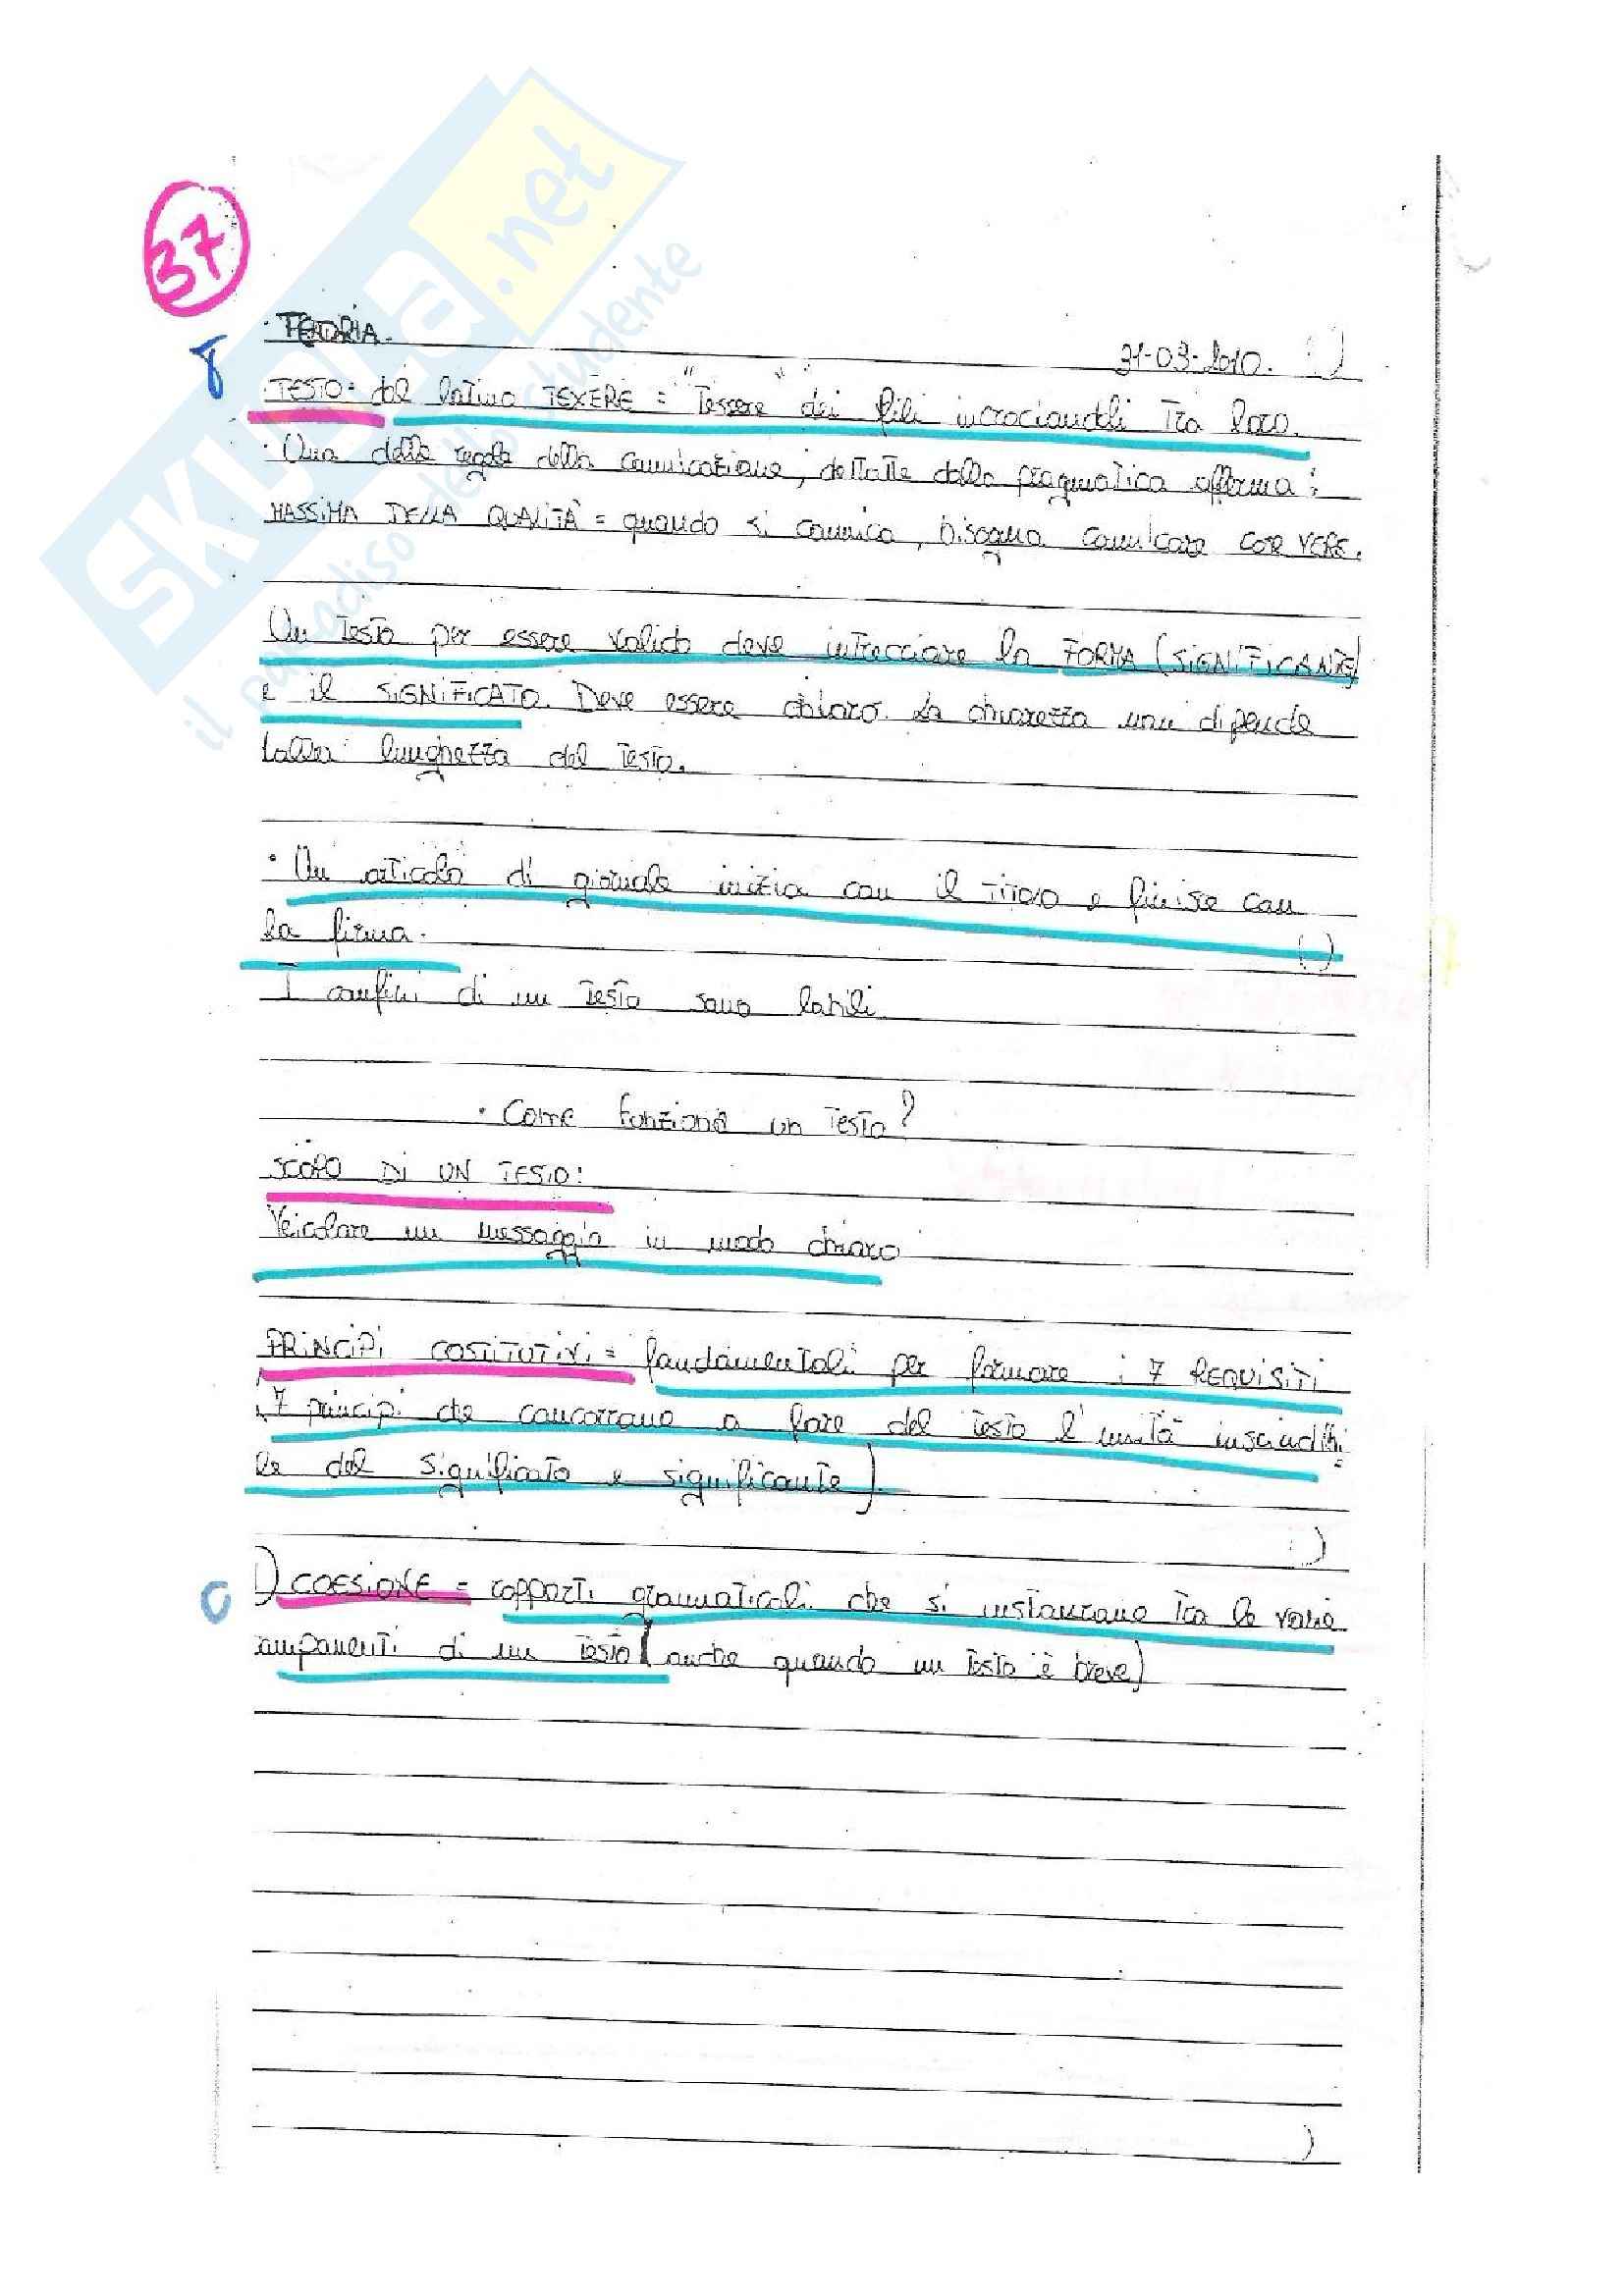 37
· TEORIA.
31-03-2010.
8
· TESTO: dal latino TEXERE = "Tessere" dei fili incrociandoli Tra loro.
· Una delle regole della comunicazione, dettate dalla pragmatica afferma:
MASSIMA DELLA QUALITÀ = quando si comunica, bisogna comunicare COSE VERE.
Un Testo per essere valido deve intrecciare la FORMA (SIGNIFICANTE)
e il SIGNIFICATO. Deve essere chiaro. La chiarezza non dipende
dalla lunghezza del Testo.
· Un articolo di giornale inizia con il TITOLO e finisce con
la firma.
I confini di un Testo sono labili
· Come funziona un Testo?
SCOPO DI UN TESTO:
Veicolare un messaggio in modo chiaro
PRINCIPI COSTITUTIVI = fondamentali per formare i 7 REQUISITI
(7 principi che concorrono a fare del Testo l'unità inscindibi=
le del significato e significante).
C
1) COESIONE = rapporti grammaticali che si instaurano Tra le varie
componenti di un Testo (anche quando un Testo è breve)
SKUOLA.net
il paradiso dello studente